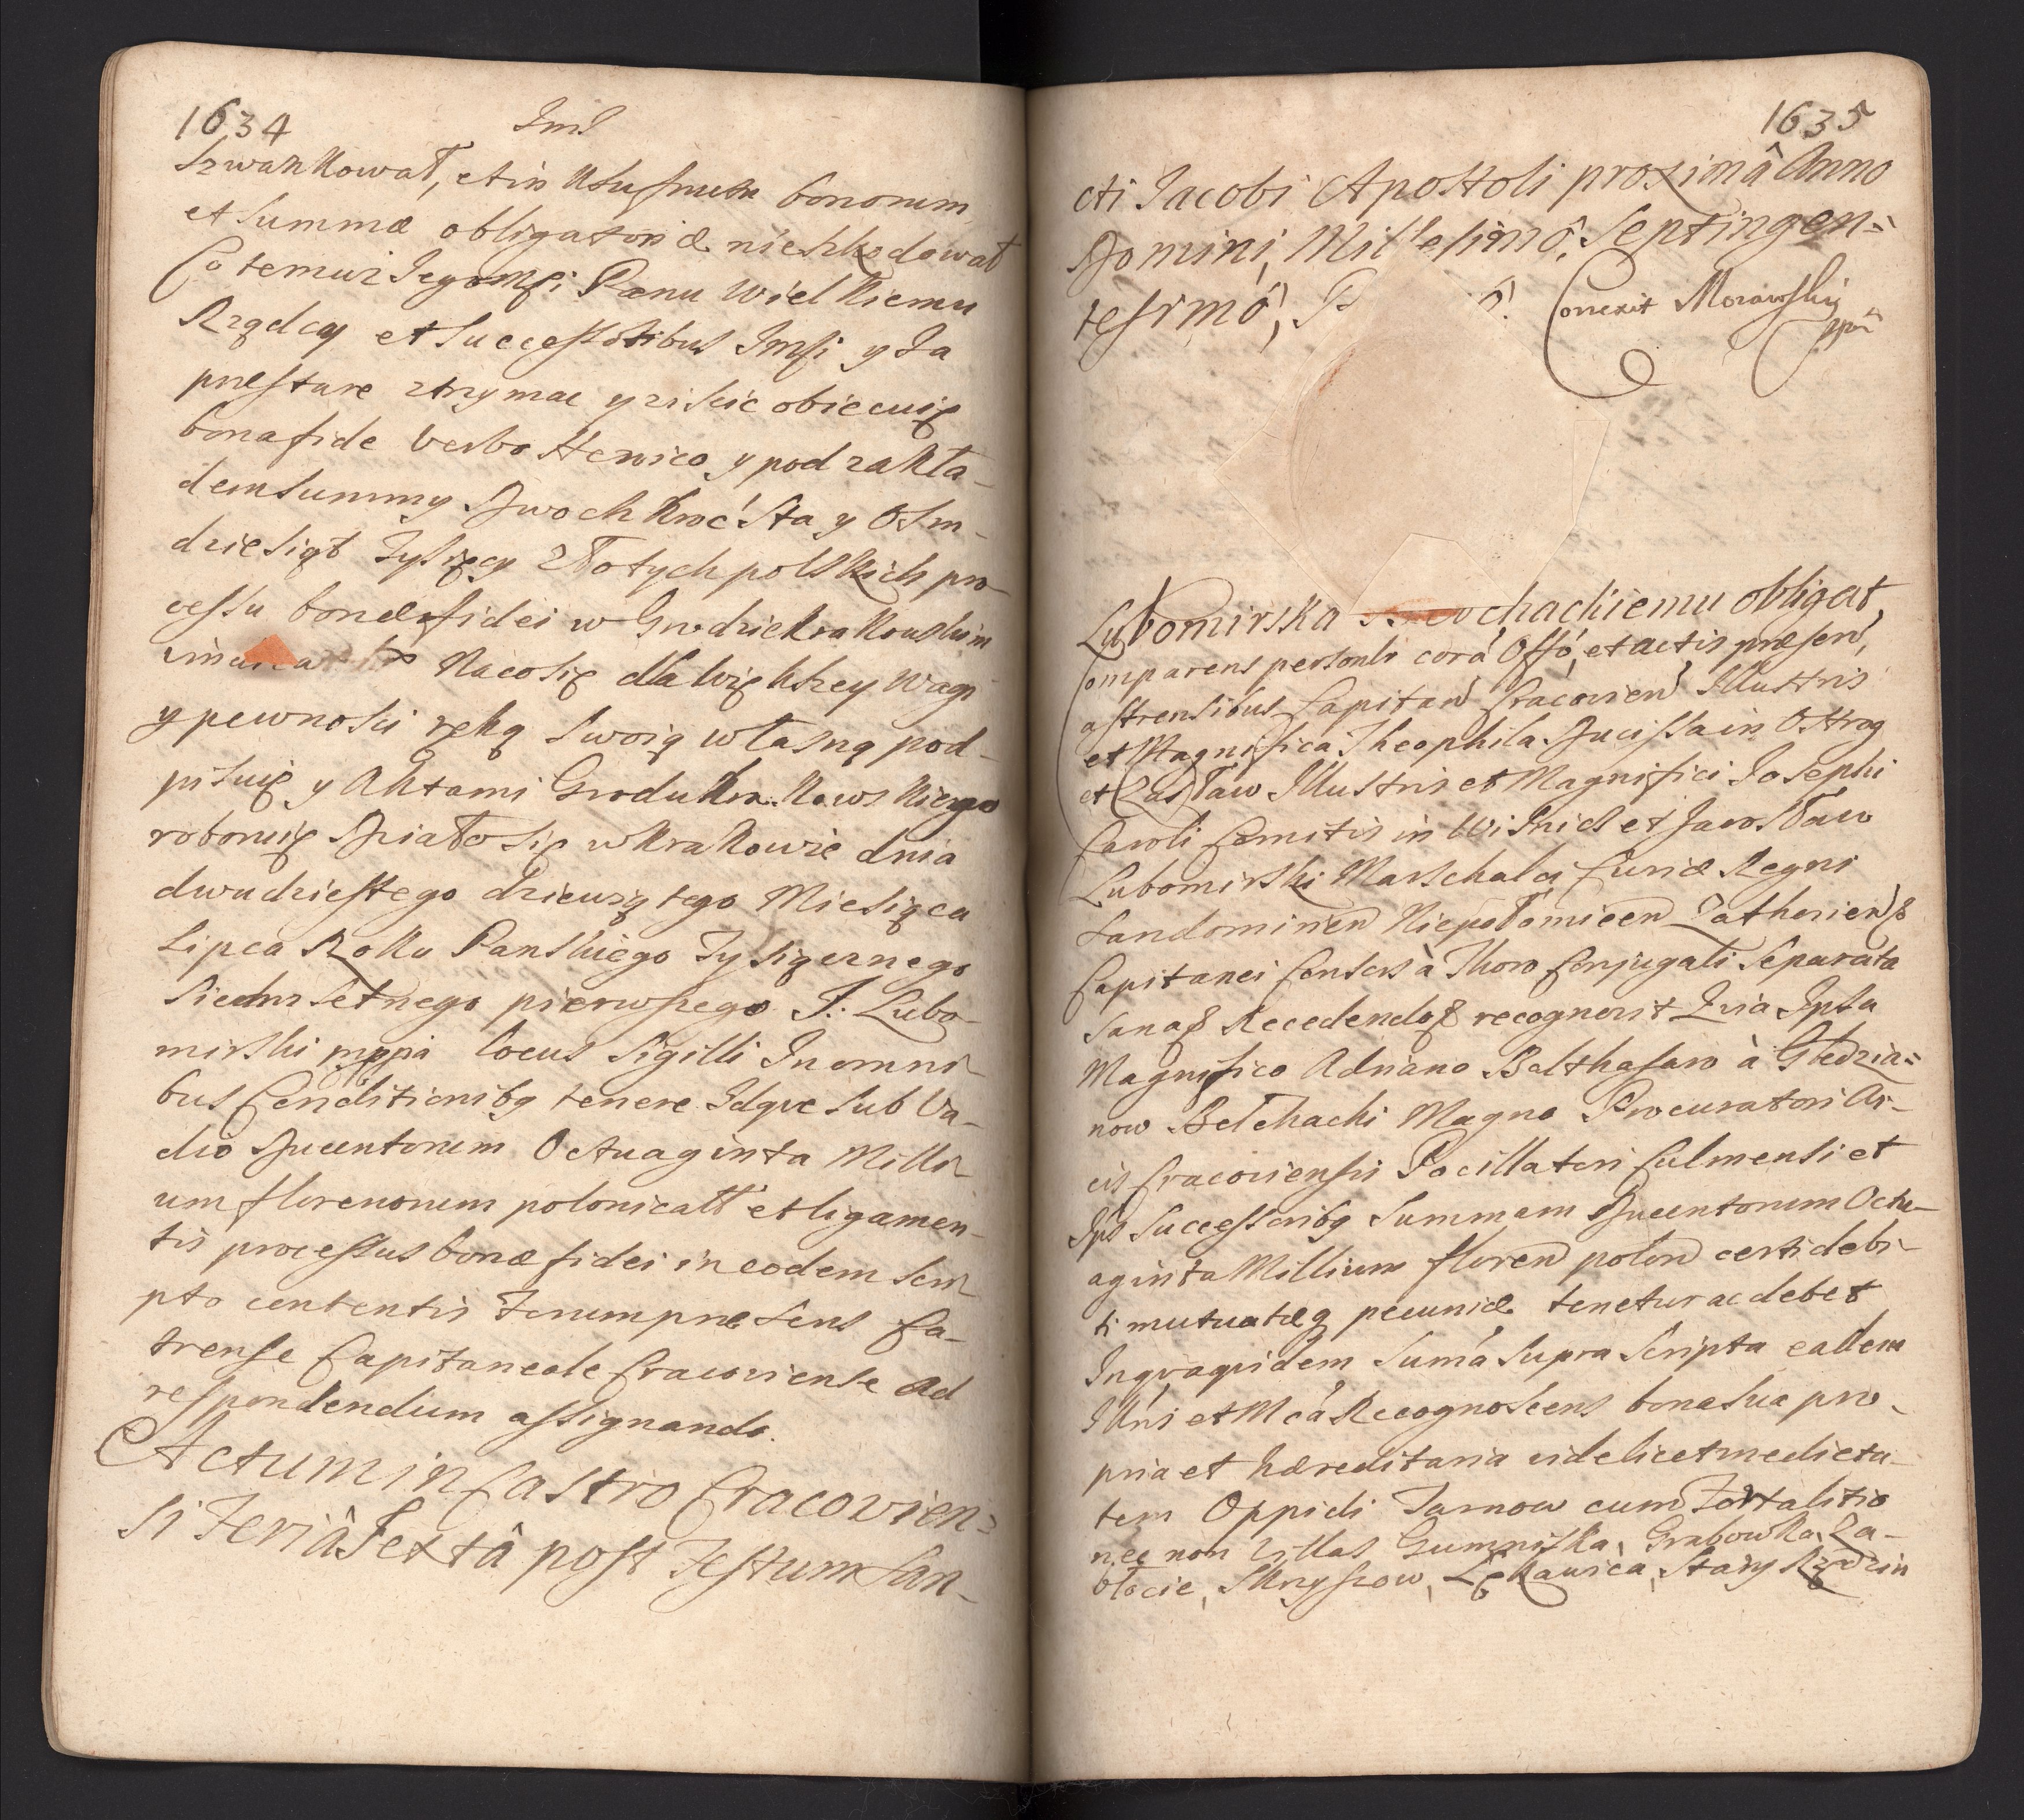 1634
Imś
Szwankował, et in Usufructu bonorum
et Summæ obligatoriæ nieszkodował
Co temuż Jegomści Panu Wielkiemu
Rządcy et Successoribus Imści y Ja
præstare ztrzymac y ziścic obiecuię
bona fide Verbo Heroico, y pod zakła-
dem Summy Dwoch kroć Sta y Osm-
dziesiąt Tysięcy Złotych polskich pro-
cessu bonæ fidei w Grodzie Krakowskim
Nacosię dla Większey wagi
y pewności ręką Swoią własną pod-
pisuię y Aktami Grodu Krakowskiego
roboruię Działo się w Krakowie dnia
dwudziestego dziewiątego Miesiąca
Lipca Roku Panskiego Tysiącznego
Siedmsetnego pierwszego J: Lubo-
mirski mppia locus Sigilli In omni-
bus Conditionibq tenere Idqve Sub Va-
dio Ducentorum Octuaginta Milli-
um florenorum polonicall et ligamen-
tis processus bonæ fidei in eodem Scri-
pto contentis Forum præsens Ca-
trense Capitaneale Cracoviense Ad
respondendum assignando.
Actum in Castro Cracovien=
si Feriâ Sextâ post Festum San-
1635
cti Jacobi Apostoli proximâ Anno
Domini, Millesimô, Septingen=
tesimô, Correxit Morawski
mpp
Lubomirska chackiemu obligat,
Comparens personlr corá Offó, et actis præsen,
astrensibus Capitan Cracovien Illustris
et Magnifica Theophila Ducissa in Ostrog
et Zasław Illustris et Magnifici Josephi
Caroli Comitis in Wisnicz et Jarosław
Lubomirski Marschalci Curiæ Regni
Sandomirien Niepołomicen Zathorien q
Capitanei Consors à Thoro Conjugali Separata
Sana q Recedendo q recognovit Qvia Ipsa
Magnifico Adriano Balthasaro à Gledzia=
now Bełchacki Magno Procuratori Ar-
cis Cracoviensis Pocillatori Culmensi et
Ips Successoribq Summam Ducentorum Octu-
aginta Millium floren polon certi debi-
ti mutuatæ q pecuniæ tenetur ac debet
In qva qvidem Sumá Supra Scripta eadem
Illris et Mcá Recognoscens bona Sua pro-
pria et hæreditaria videlicet medieta-
tem Oppidi Tarnow cum Fortalitio
nec non Villas Gumniska, Grabowka, Za-
błocie, Skrzyszow, Łękawica, Stary Rzędzin